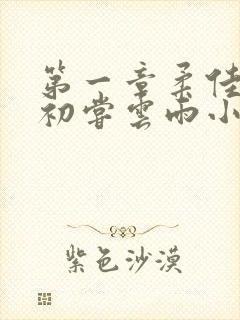 第一章柔佳
初尝雲雨小
紫色沙漠